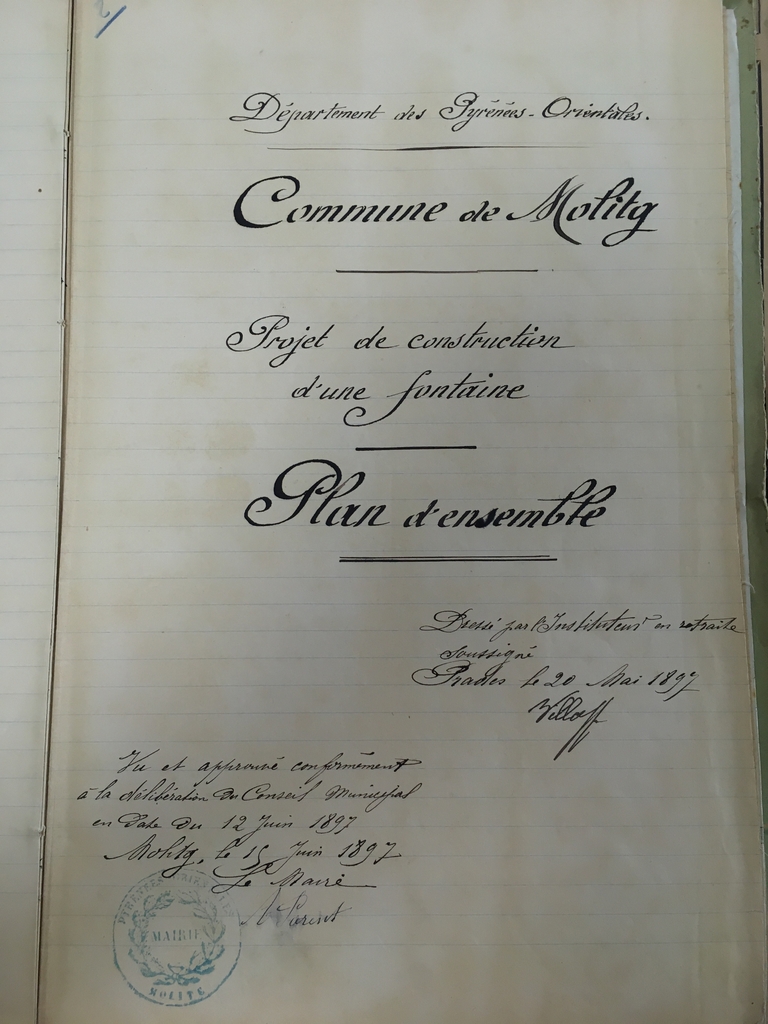 2/
Département des Pyrénées-Orientales.
Commune de Molitg
Projet de construction
d'une fontaine
Plan d'ensemble
Dressé par l'Instituteur en retraite
soussigné
Prades le 20 Mai 1897
Vu et approuvé conformément
à la délibération du Conseil Municipal
en date du 12 Juin 1897
Molitg, le 15 Juin 1897
Le Maire
PYRÉNÉES ORIENTALES
MAIRIE
MOLITG